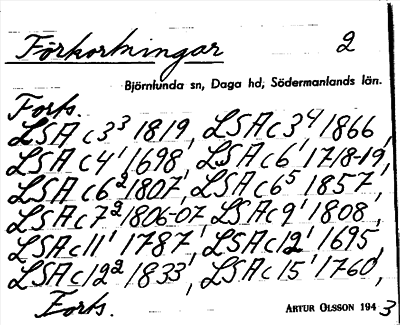 Förkortningar 2
Björnlunda sn, Daga hd, Södermanlands län.
Forts.
LSA c 3³ 1819, LSA c 3⁴ 1866,
LSA c 4¹ 1698, LSA c 6¹ 1718-19,
LSA c 6² 1807, LSA c 6⁵ 1857,
LSA c 7² 1806-07, LSA c 9¹ 1808,
LSA c 11¹ 1787, LSA c 12¹ 1695,
LSA c 12² 1833, LSA c 15¹ 1760,
Forts. ARTUR OLSSON 1943